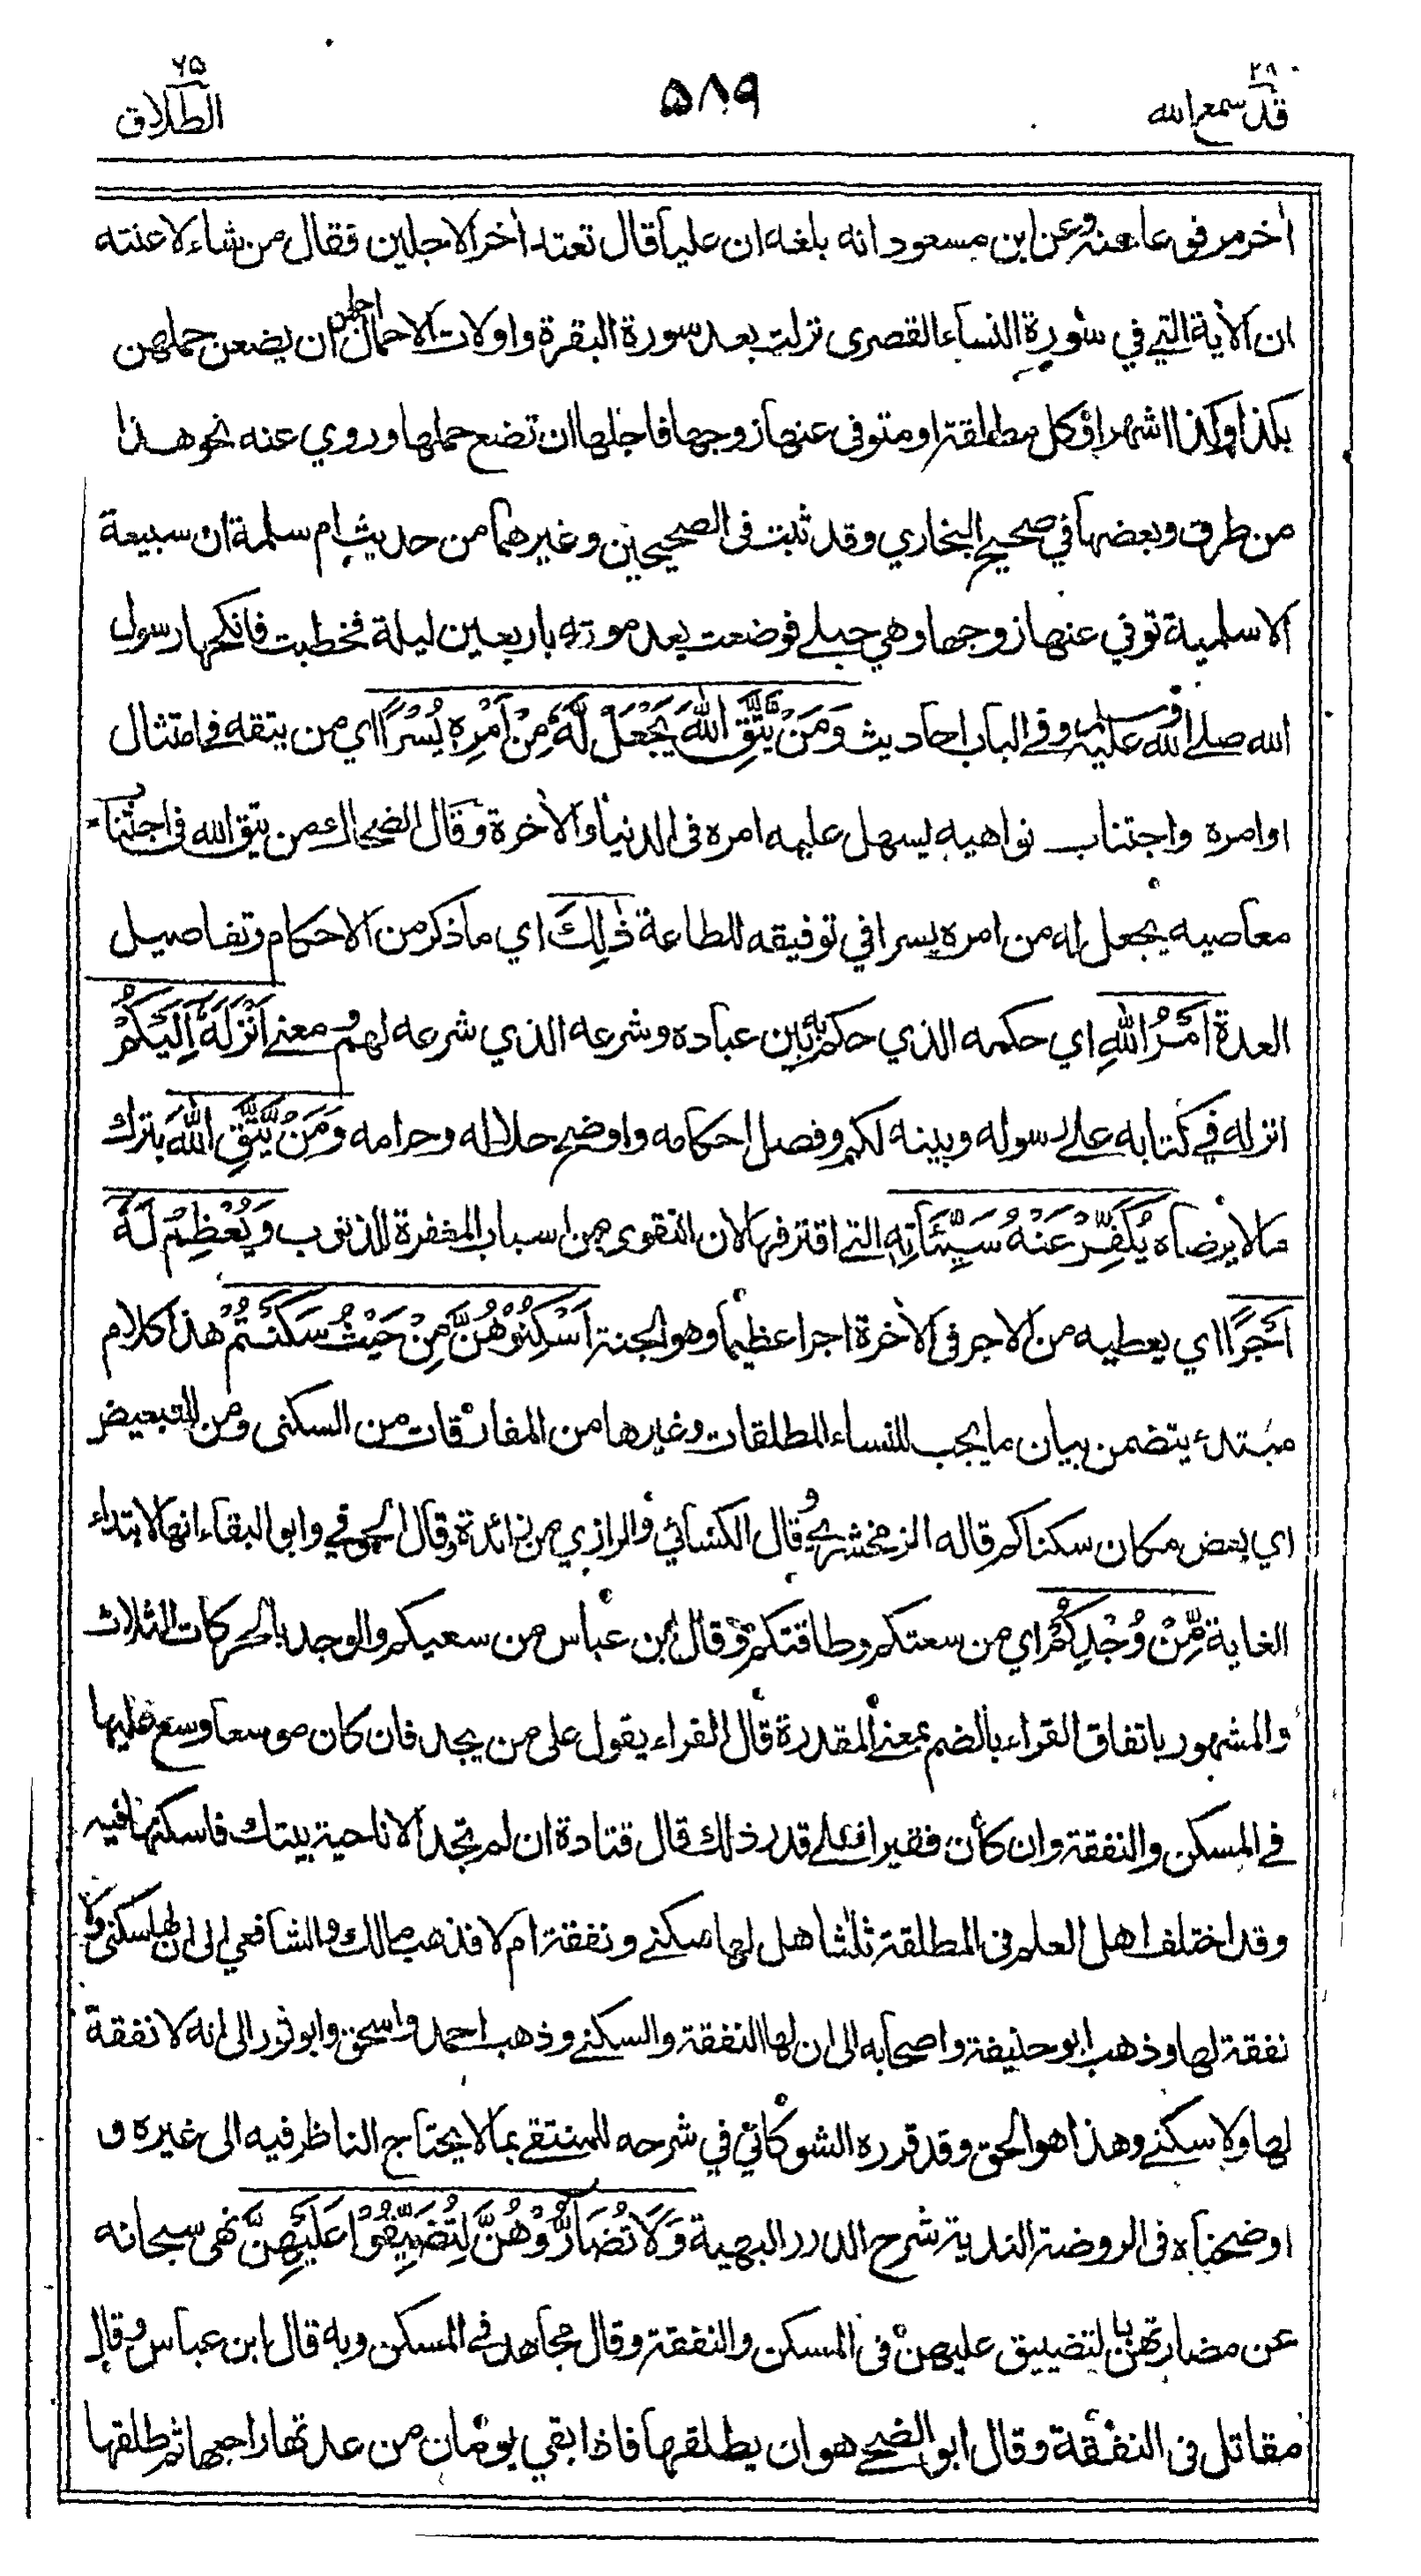 قد سمع الله ٢٨
٥٨٩
الطلاق ٦٥
اخر مرفوعا عنه وعن ابن مسعود انه بلغه ان عليا قال تعتد اخر الاجلين فقال من شاء لاعنته
ان الآية التي في سورة النساء القصرى نزلت بعد سورة البقرة واولات الاحمال اجلهن ان يضعن حملهن
بكذا وكذا اشهرا فكل مطلقة او متوفى عنها زوجها فاجلها ان تضع حملها وروي عنه نحو هذا
من طرق وبعضها في صحيح البخاري وقد ثبت فى الصحيحين وغيرهما من حديث ام سلمة ان سبيعة
الاسلمية توفي عنها زوجها وهي حبلى فوضعت بعد موته باربعين ليلة فخطبت فانكحها رسول
الله صلى الله عليه وسلم وفي الباب احاديث وَمَنْ يَّتَّقِ اللّٰهَ يَجْعَلْ لَّهٗ مِنْ اَمْرِهٖ يُسْرًا اي من يتقه في امتثال
اوامره واجتناب نواهيه يسهل عليه امره فى الدنيا والآخرة وقال الضحاك من يتق الله فى اجتناب
معاصيه يجعل له من امره يسرا في توفيقه للطاعة ذٰلِكَ اي ما ذكر من الاحكام وتفاصيل
العدة اَمْرُ اللّٰهِ اي حكمه الذي حكم به بين عباده وشرعه الذي شرعه لهم ومعنى اَنْزَلَهٗ اِلَيْكُمْ
انزله في كتابه على رسوله وبينه لكم وفصل احكامه واوضح حلاله وحرامه وَمَنْ يَّتَّقِ اللّٰهَ بترك
ما لا يرضاه يُكَفِّرْ عَنْهُ سَيِّئَاتِهٖ التي اقترفها لان التقوى من اسباب المغفرة للذنوب وَيُعْظِمْ لَهٗ
اَجْرًا اي يعطيه من الاجر فى الآخرة اجرا عظيما وهو الجنة اَسْكِنُوْهُنَّ مِنْ حَيْثُ سَكَنْتُمْ هذا كلام
مبتدئ يتضمن بيان ما يجب للنساء المطلقات وغيرها من المفارقات من السكنى ومن للتبعيض
اي بعض مكان سكناكم قاله الزمخشري وقال الكسائي والرازي من زائدة وقال الحوفي وابو البقاء انها لابتداء
الغاية مِّنْ وُجْدِكُمْ اي من سعتكم وطاقتكم وقال ابن عباس من سعيكم والوجد بالحركات الثلاث
والمشهور باتفاق القراء بالضم بمعنى المقدرة قال الفراء يقول على من يجد فان كان موسعا وسع عليها
في المسكن والنفقة وان كان فقيرا فعلى قدر ذلك قال قتادة ان لم تجد الا ناحية بيتك فاسكنها فيه
وقد اختلف اهل العلم فى المطلقة ثلثا هل لها سكنى ونفقة ام لا فذهب مالك والشافعي الى ان لها سكنى ولا
نفقة لها وذهب ابو حنيفة واصحابه الى ان لها النفقة والسكنى وذهب احمد واسحق وابو ثور الى انه لا نفقة
لها ولا سكنى وهذا هو الحق وقد قرره الشوكاني في شرحه للمنتقى بما لا يحتاج الناظر فيه الى غيره و
اوضحناه فى الروضة الندية شرح الدرر البهية وَلَا تُضَآرُّوْهُنَّ لِتُضَيِّقُوْا عَلَيْهِنَّ نهى سبحانه
عن مضارتهن بالتضييق عليهن فى المسكن والنفقة وقال مجاهد في المسكن وبه قال ابن عباس وقال
مقاتل فى النفقة وقال ابو الضحى هو ان يطلقها فاذا بقي يومان من عدتها راجعها ثم طلقها